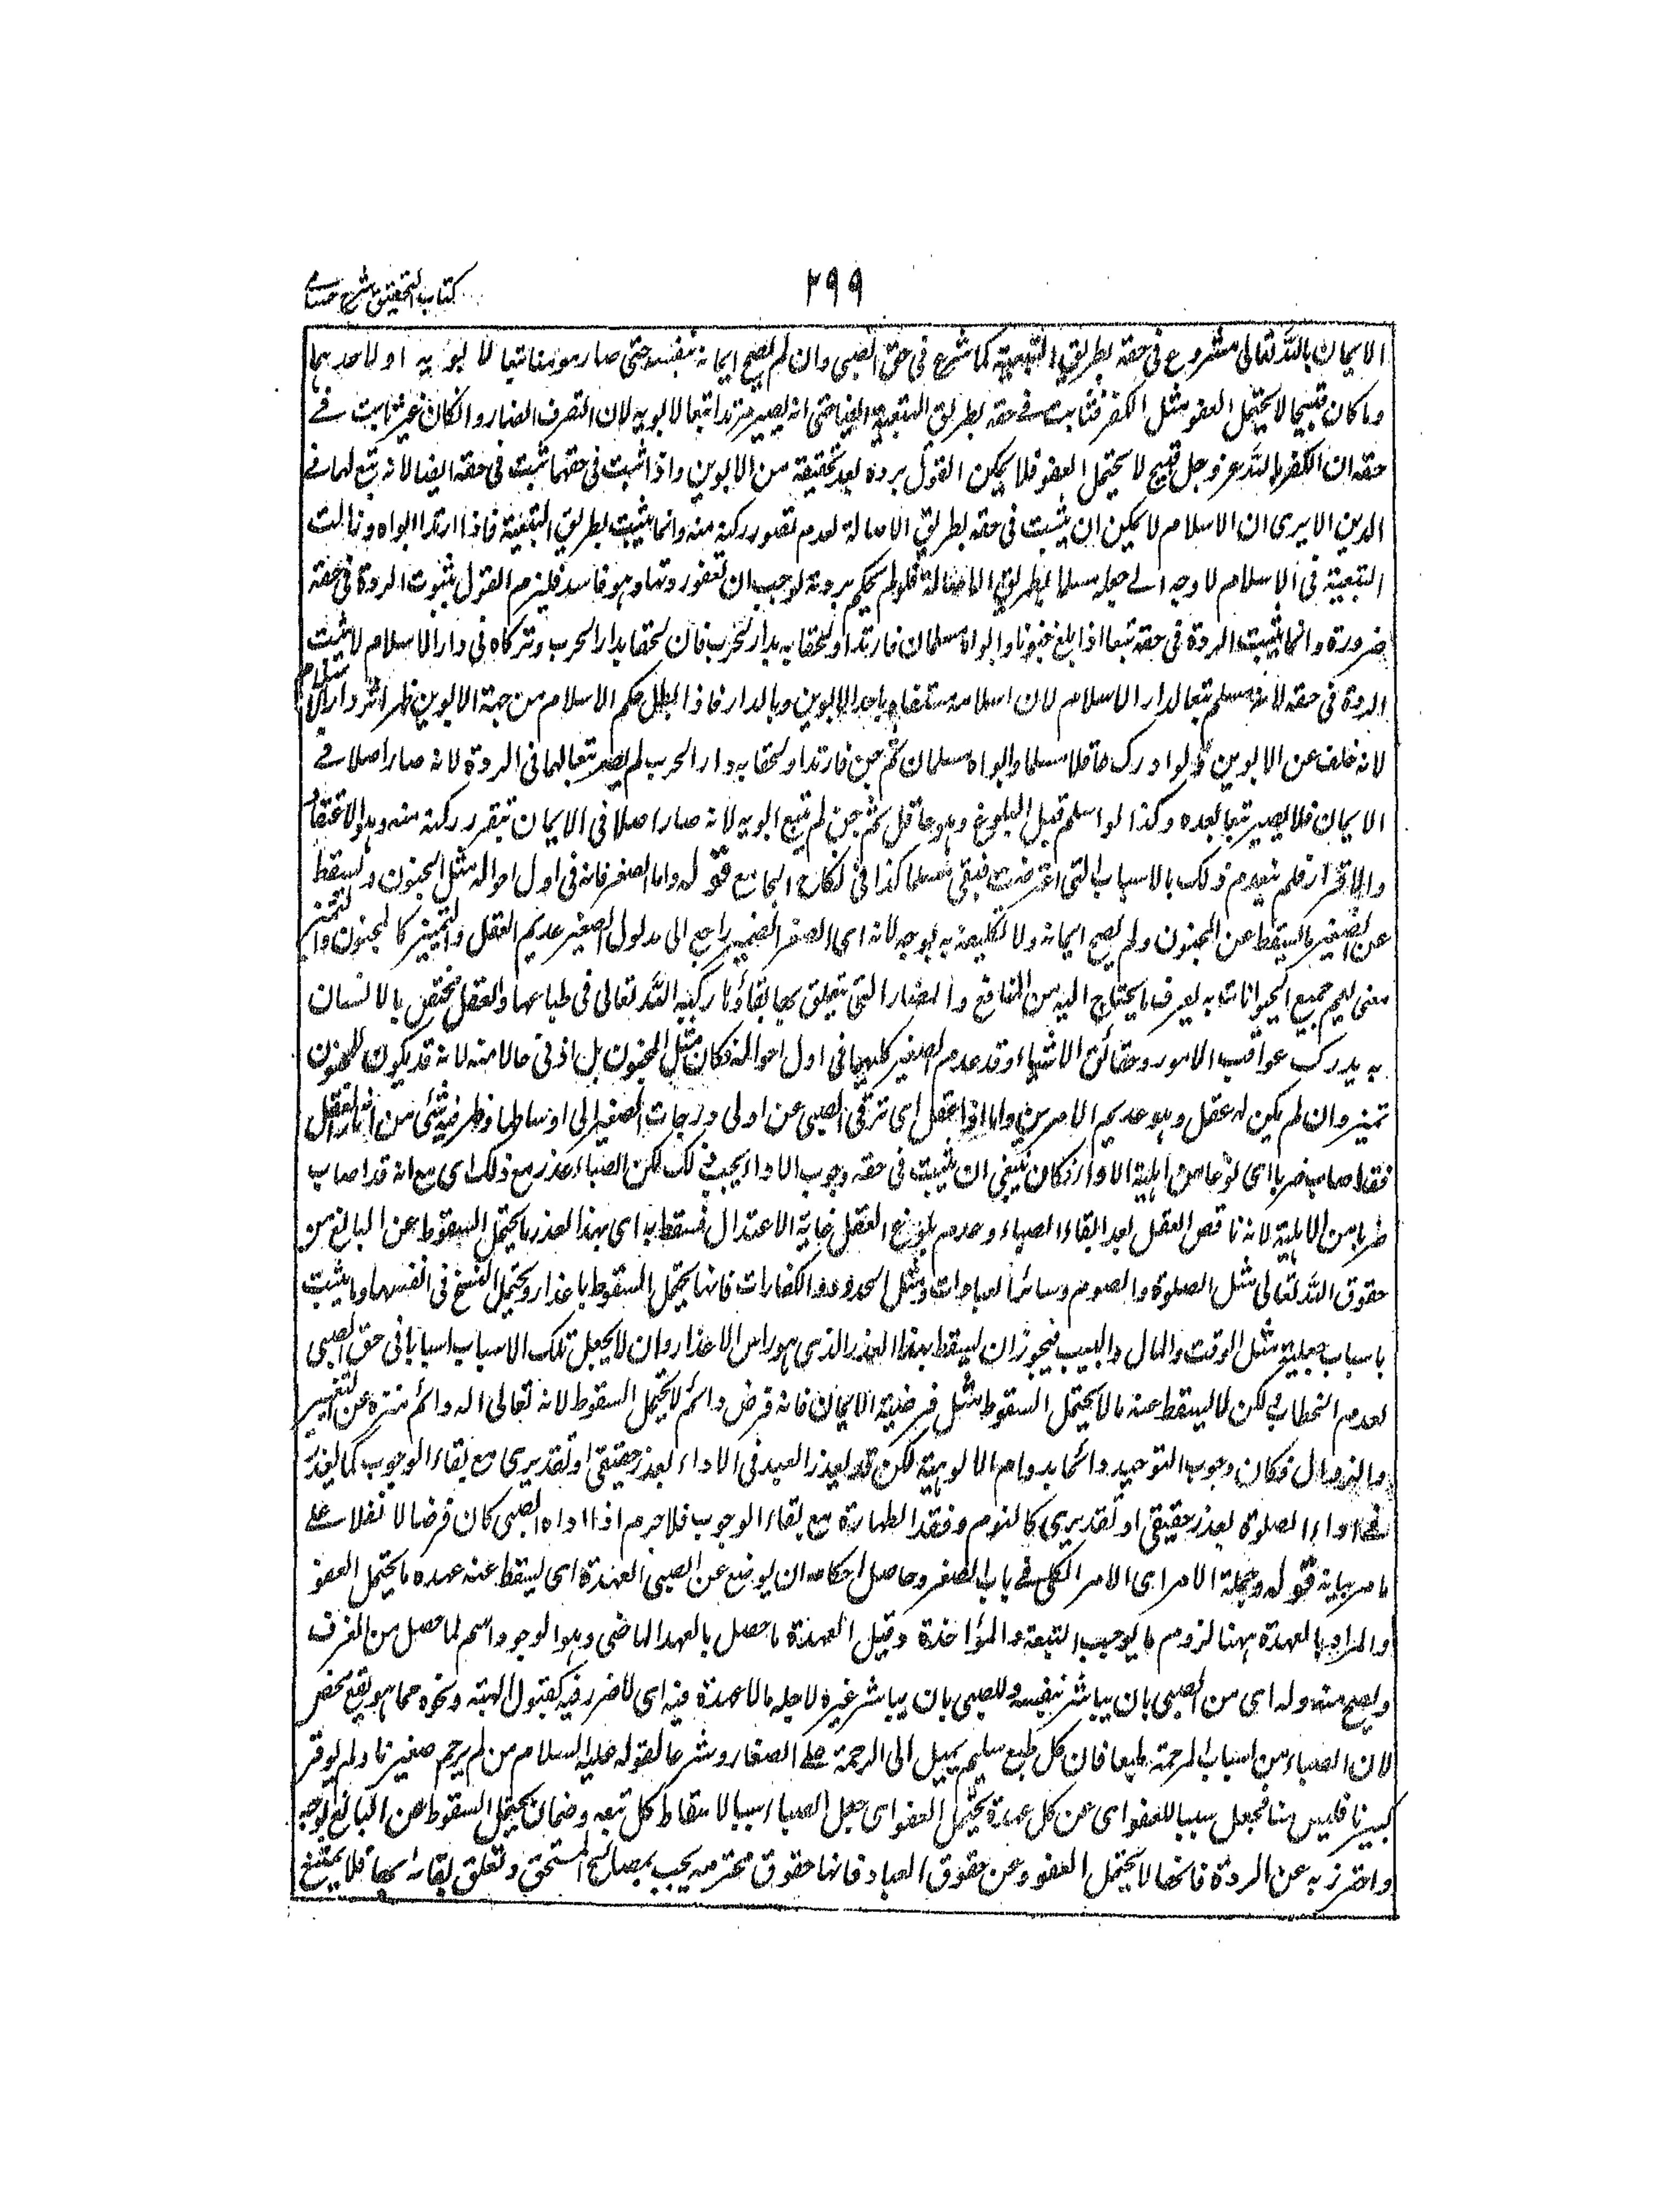 كتاب التحقيق شرح حسامى
٢٩٩
الايمان بالله تعالى مشروع فى حقه بطريق التبعية كما شرع فى حق الصبى وان لم يصح ايمانه بنفسه حتى صار مومنا تبعا لابويه او لاحدهما
وما كان قبيحا لا يحتمل العفو مثل الكفر فثابت فى حقه بطريق التبعية ايضا حتى انه يصير مرتدا تبعا لابويه لان التصرف الضار وان كان غير ثابت فى
حقه ان الكفر بالله عز وجل قبيح لا يحتمل العفو فلا يمكن القول برده بعد تحقيقة من الابوين واذا ثبت فى حقهما ثبت فى حقه ايضا لانه تبع لهما فى
الدين الا يرى ان الاسلام لا يمكن ان يثبت فى حقه بطريق الاصالة لعدم تصور ركنه منه وانما يثبت بطريق التبعية فاذا ارتد ابواه وزالت
التبعية فى الاسلام لا وجه الى جعله مسلما بطريق الاصالة فلو لم يحكم بردته لوجب ان تعفو ردتهما وهو فاسد فلزم القول بثبوت الردة فى حقه
ضرورة وانما يثبت الردة فى حقه تبعا اذا بلغ مجنونا وابواه مسلمان فارتدا ولحقا به بدار الحرب فان لحقا بدار الحرب وتركاه فى دار الاسلام لا يثبت
الردة فى حقه لانه مسلم تبعا لدار الاسلام لان اسلامه مستفاد باحد الابوين وبالدار فاذا بطل حكم الاسلام من جهة الابوين ظهر اثر دار الاسلام
لانه خلف عن الابوين ولو ادرك عاقلا مسلما وابواه مسلمان ثم جن فارتدا ولحقا به دار الحرب لم يصر تبعا لهما فى الردة لانه صار اصلا فى
الايمان فلا يصير تبعا بعده وكذا لو اسلم قبل البلوغ وهو عاقل ثم جن لم يتبع ابويه لانه صار اصلا فى الايمان بتقرر ركنه منه وهو الاعتقاد
والاقرار فلم ينعدم ذلك بالاسباب التى اعترضت فبقى مسلما كذا فى نكاح الجامع قوله واما الصغر فانه فى اول احواله مثل الجنون ويسقط
عن الصغير ما يسقط عن المجنون ولم يصح ايمانه ولا تكليفه به بوجه لانه اى الصغر الضمير راجع الى مدلول الصغير عديم العقل والتمييز كالمجنون والتمييز
معنى يعم جميع الحيوانات به يعرف ما يحتاج اليه من المنافع والمضار التى يتعلق بها بقاؤه ركبه الله تعالى فى طباعها والعقل مختص بالانسان
به يدرك عواقب الامور وحقائق الاشياء وقد عدم الصغير كليهما فى اول احواله فكان مثل المجنون بل ادنى حالا منه لانه قد يكون للمجنون
تمييز وان لم يكن له عقل وهو عديم الامرين واما اذا عقل اى ترقى الصبى عن اولى درجات الصغر الى اوساطها وظهر فيه شئ من آثار العقل
فقد اصاب ضربا اى نوعا من اهلية الاداء فكان ينبغى ان يثبت فى حقه وجوب الاداء بحسب ذلك لكن الصباء عذر مع ذلك اى مع انه قد اصاب
ضربا من الاهلية لانه ناقص العقل بعد لبقاء الصباء وعدم بلوغ العقل غاية الاعتدال فسقط به اى بهذا العذر ما يحتمل السقوط عن البالغ من
حقوق الله تعالى مثل الصلوة والصوم وسائر العبادات ومثل الحدود والكفارات فانها يحتمل السقوط باعذار ويحتمل النسخ فى انفسها وما يثبت
باسباب جعلية مثل الوقت والمال والبيت فيجوز ان يسقط بهذا العذر الذى هو راس الاعذار وان لا يجعل تلك الاسباب اسبابا فى حق الصبى
لعدم الخطاب لكن لا يسقط عنه ما لا يحتمل السقوط مثل فرضية الايمان فانه فرض دائم لا يحتمل السقوط لانه تعالى اله دائم منزه عن التغيير
والزوال فكان وجوب التوحيد دائما بدوام الالوهية لكن قد يعذر العبد فى الاداء بعذر حقيقى او تقديرى مع بقاء الوجوب كما يعذر
فى اداء الصلوة بعذر حقيقى او تقديرى كالنوم وفقد الطهارة مع بقاء الوجوب فلا جرم اذا اداه الصبى كان فرضا لا نفلا على
ما مر بيانه قوله وجملة الامر اى الامر الكلى فى باب الصغر وحاصل احكامه ان يوضع عن الصبى العهدة اى يسقط عنه عهده ما يحتمل العفو
والمراد بالعهدة ههنا لزوم ما يوجب التبعة والمؤاخذة وقيل العهدة ما حصل بالعهد الماضى وهو الوجود اسم لما حصل من الغرف
ويصح منه وله اى من الصبى بان يباشر بنفسه وللصبى بان يباشر غيره لاجله ما لا عهدة فيه اى لا ضرر فيه كقبول الهبة ونحوه مما هو نفع محض
لان الصباء من اسباب المرحمة طبعا فان كل طبع سليم يميل الى الرحمة على الصغار وشرعا لقوله عليه السلام من لم يرحم صغيرنا ولم يوقر
كبيرنا فليس منا فجعل سببا للعفو اى عن كل عهدة يحتمل العفو اى جعل الصبا سببا لاسقاط كل تبعه وضمان يحتمل السقوط عن البالغ بوجه
واحترز به عن الردة فانها لا يحتمل العفو وعن حقوق العباد فانها حقوق محترمه يجب بمصالح المستحق وتعلق بقائه بها فلا يمتنع